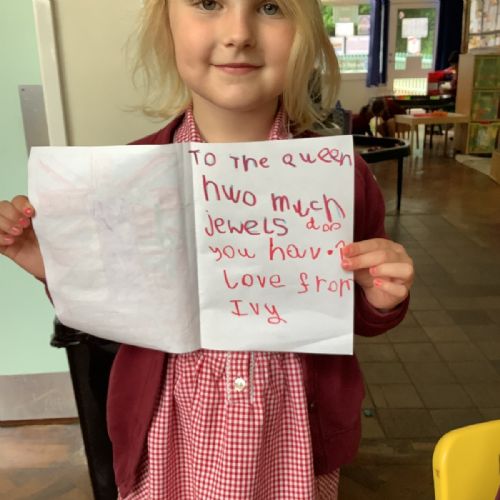 To The Queen
hwo much
jewels doo
you hav.?
Love from
Ivy